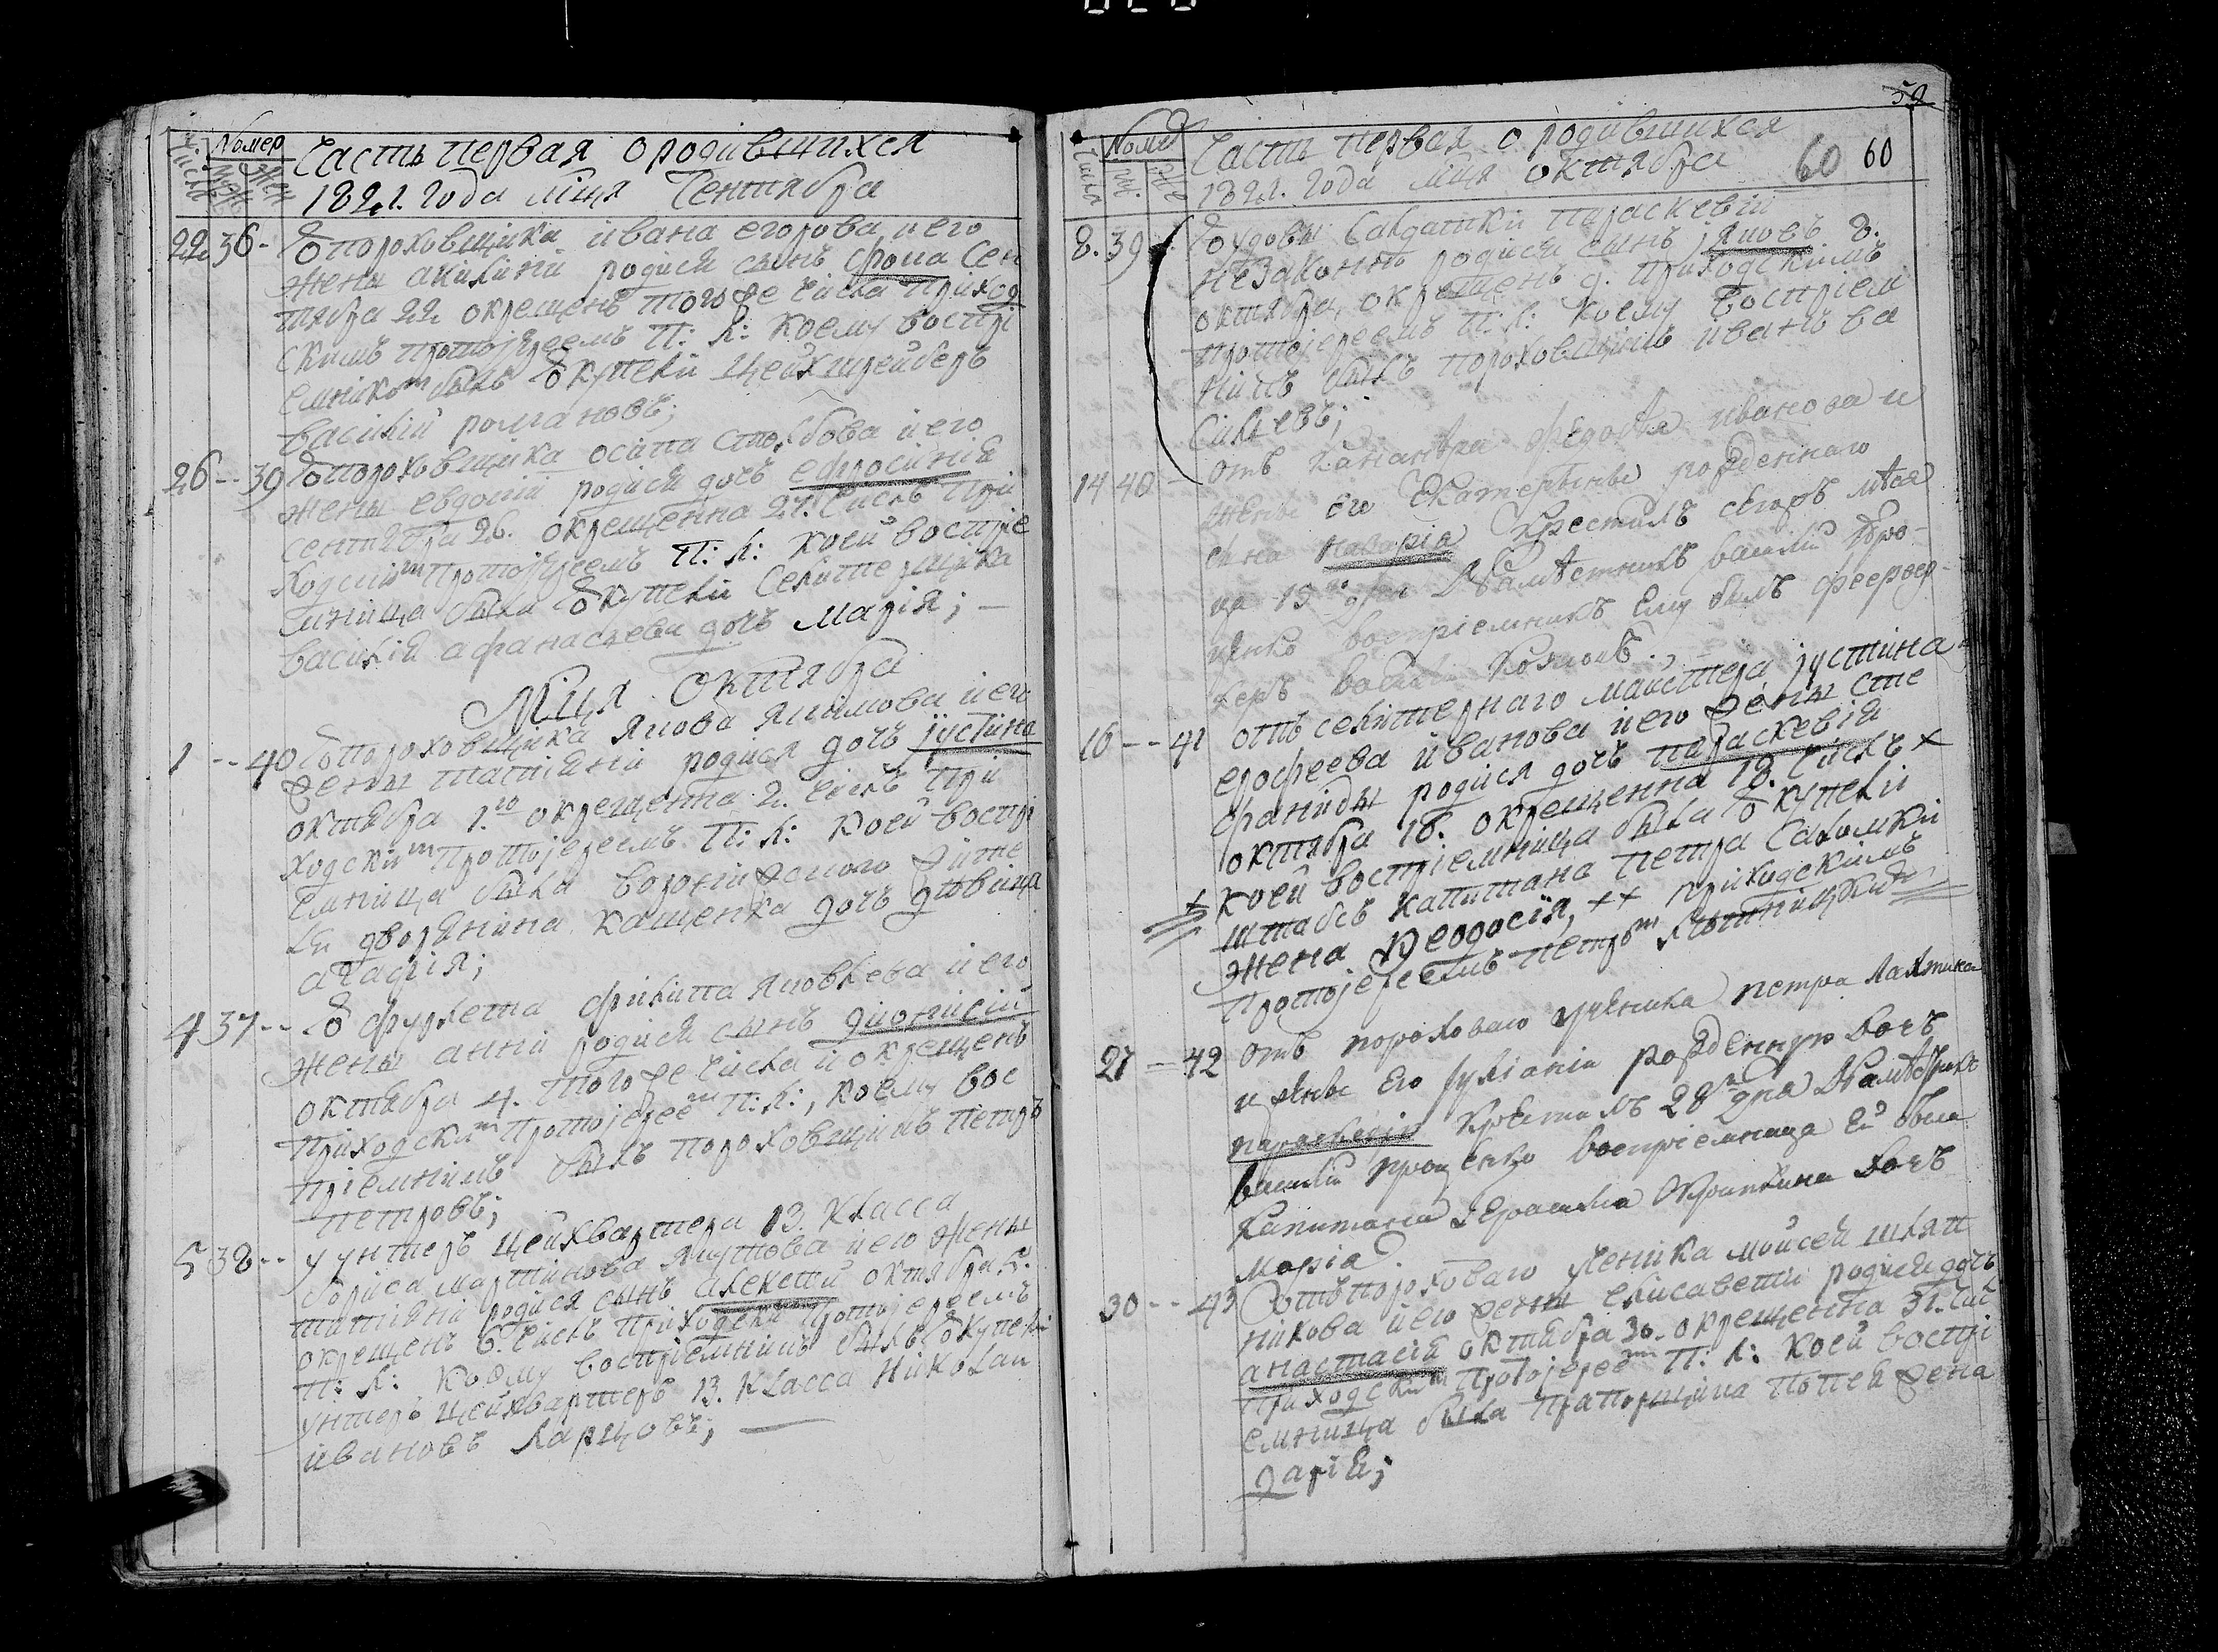 Числа
Номер
Муж
Жен
Часть первая о родившихся
1821. Года мца Сентября
22 36 - Ѿ пороховщика ивана егорова и его
жены акилины родися сынъ фома Сен
тября 22 окрещенъ того же числа приход
скимъ протоіереемъ П: Л: коему воспрі
емникомъ былъ Ѿ купели цейхшрейберъ
василій романовъ;
26 -- 39 Ѿ пороховщика осипа столбова и его
жены евдокіи родися дочь ефросинія
сентября 26. окрещенна 27. числъ при
ходскимъ протоіереемъ П: Л: коей воспріе
мница была Ѿ купели селитерщика
василія афанасьева дочь марія; —
Мца Октября
1 -- 40 Ѿ пороховщика якова якимова и его
жены татіяны родися дочь іустіна
октября 1.го окрещенна 2. числъ при
ходскимъ протоіереемъ П: Л: коей воспрі
емница была воронѣжского жите
ля дворянина кащенка дочь дѣвица
агафія;
4 37 -- Ѿ фурлета филипа яковлева и его
жены анны родися сынъ діонисій
октября 4. того же числа и окрещенъ
приходскимъ протоіереемъ П: Л:, коему вос
пріемникъ былъ пороховщикъ петръ
петровъ;
5 38 -- у унтеръ цейхвартера 13. класса
бориса мартинова якутова и его жены
татіяны родися сынъ алексѣй октября 5.
окрещенъ 6. числъ приходски протоіереемъ
П: Л: коему воспріемникъ былъ Ѿ купели
унтеръ цейхвартеръ 13. класса николай
ивановъ ларцовъ; —
59
60 60
Числа
Номер
Часть первая о родившихся
1821. Года мца октября
8. 39 Ѿ удовы салдатки параскевіи
незаконнъ родися сынъ іяковъ 8.
октября, окрещенъ 9. приходскимъ
протоіереемъ П: Л: коему воспріем
никъ былъ пороховщикъ иванъ ва
сильевъ;
14 40 - отъ федота иванова и
жены его Екатерины рожденнаго
сына назарія крестилъ сегожъ мѣся
ца 15го дня намѣстникъ василій
воспріемникъ Ему былъ феервер-
керъ
16 -- 41 отъ селитерного майстера іустина
ерофеева иванова и его жены сте
фаниды родися дочь параскевія
октября 16. окрещенна 18. числъ х
х коей воспріемница была Ѿ купели
штабсъ капитана петра саломки
жена Ѳеодосія, хх приходскимъ
протоіереемъ петромъ
27 -- 42 отъ порохового ученика петра
и жены его Іуліаніи рожденную дочь
параскевію крестилъ 28го дня намѣстникъ
василій проценко воспріемница ей была
капитана дочь
марія.
30 -- 43 Отъ порохового ученика мойсея шляп
никова и его жены елисаветы родися дочь
анастасія октября 30. окрещенна 31. чис
приходскимъ протоіереемъ П: Л: коей воспрі
емница была прапорщика попея жена
дарія;